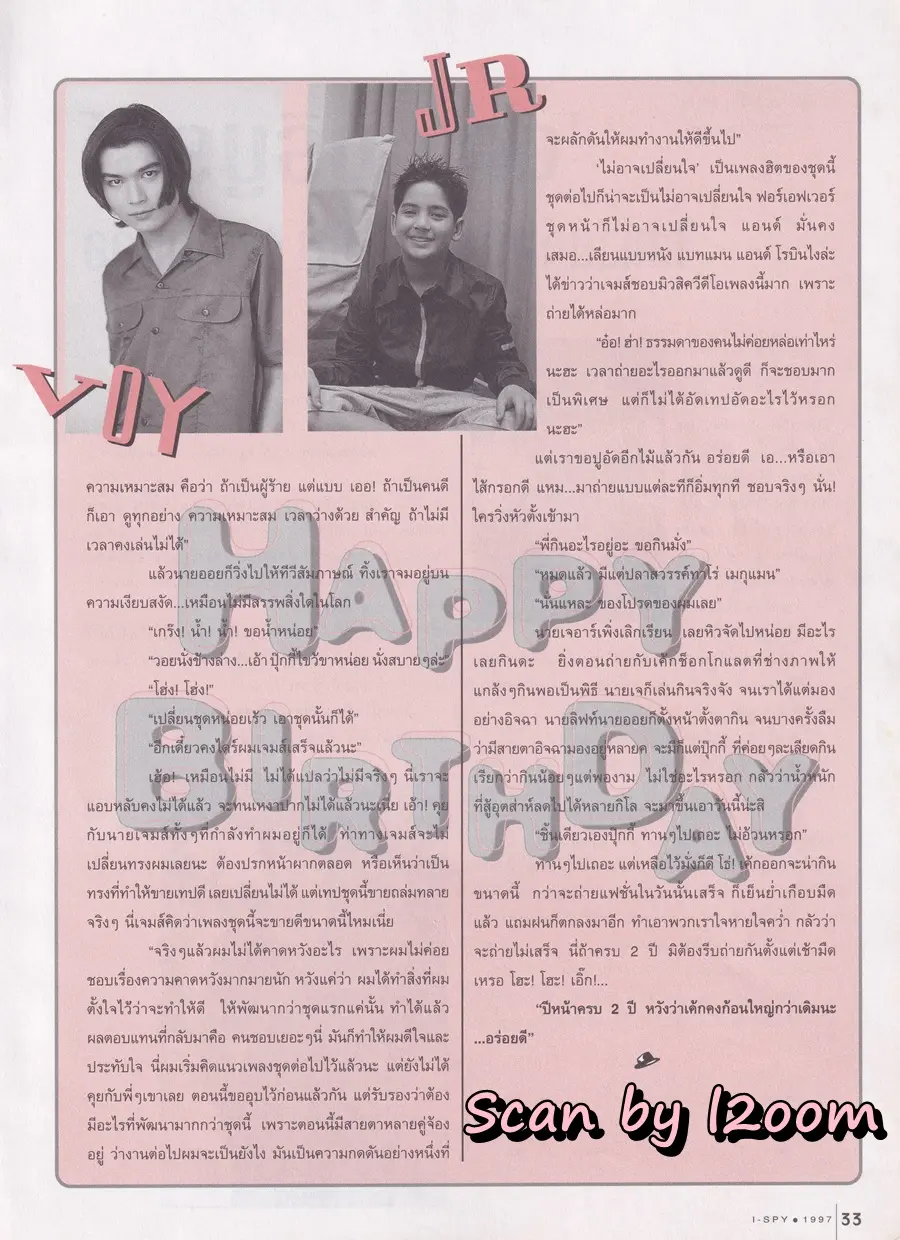 JR
VOY
ความเหมาะสม คือว่า ถ้าเป็นผู้ร้าย แต่แบบ เออ! ถ้าเป็นคนดี
ก็เอา ดูทุกอย่าง ความเหมาะสม เวลาว่างด้วย สำคัญ ถ้าไม่มี
เวลาคงเล่นไม่ได้”
แล้วนายออยก็วิ่งไปให้ทีวีสัมภาษณ์ ทิ้งเราจมอยู่บน
ความเงียบสงัด...เหมือนไม่มีสรรพสิ่งใดในโลก
“เกร๊ง! น้ำ! น้ำ! ขอน้ำหน่อย”
“วอยนั่งข้างล่าง...เอ้า ปุ๊กกี้ไขว้ขาหน่อย นั่งสบายๆล่ะ”
“โฮ่ง! โฮ่ง!”
“เปลี่ยนชุดหน่อยเร็ว เอาชุดนั้นก็ได้”
“อีกเดี๋ยวคงไดร์ผมเจมส์เสร็จแล้วนะ”
เฮ้อ! เหมือนไม่มี ไม่ได้แปลว่าไม่มีจริงๆ นี่เราจะ
แอบหลับคงไม่ได้แล้ว จะทนเหงาปากไม่ได้แล้วนะเนี่ย เอ้า! คุย
กับนายเจมส์ทั้งๆที่กำลังทำผมอยู่ก็ได้ ท่าทางเจมส์จะไม่
เปลี่ยนทรงผมเลยนะ ต้องปรกหน้าผากตลอด หรือเห็นว่าเป็น
ทรงที่ทำให้ขายเทปดี เลยเปลี่ยนไม่ได้ แต่เทปชุดนี้ขายถล่มทลาย
จริงๆ นี่เจมส์คิดว่าเพลงชุดนี้จะขายดีขนาดนี้ไหมเนี่ย
“จริงๆแล้วผมไม่ได้คาดหวังอะไร เพราะผมไม่ค่อย
ชอบเรื่องความคาดหวังมากมายนัก หวังแค่ว่า ผมได้ทำสิ่งที่ผม
ตั้งใจไว้ว่าจะทำให้ดี ให้พัฒนากว่าชุดแรกแค่นั้น ทำได้แล้ว
ผลตอบแทนที่กลับมาคือ คนชอบเยอะๆนี่ มันก็ทำให้ผมดีใจและ
ประทับใจ นี่ผมเริ่มคิดแนวเพลงชุดต่อไปไว้แล้วนะ แต่ยังไม่ได้
คุยกับพี่ๆเขาเลย ตอนนี้ขออุบไว้ก่อนแล้วกัน แต่รับรองว่าต้อง
มีอะไรที่พัฒนามากกว่าชุดนี้ เพราะตอนนี้มีสายตาหลายคู่จ้อง
อยู่ ว่างานต่อไปผมจะเป็นยังไง มันเป็นความกดดันอย่างหนึ่งที่
จะผลักดันให้ผมทำงานให้ดีขึ้นไป”
‘ไม่อาจเปลี่ยนใจ’ เป็นเพลงฮิตของชุดนี้
ชุดต่อไปก็น่าจะเป็นไม่อาจเปลี่ยนใจ ฟอร์เอฟเวอร์
ชุดหน้าก็ไม่อาจเปลี่ยนใจ แอนด์ มั่นคง
เสมอ...เลียนแบบหนัง แบทแมน แอนด์ โรบินไงล่ะ
ได้ข่าวว่าเจมส์ชอบมิวสิควีดีโอเพลงนี้มาก เพราะ
ถ่ายได้หล่อมาก
“อ๋อ! ฮ่า! ธรรมดาของคนไม่ค่อยหล่อเท่าไหร่
นะฮะ เวลาถ่ายอะไรออกมาแล้วดูดี ก็จะชอบมาก
เป็นพิเศษ แต่ก็ไม่ได้อัดเทปอัดอะไรไว้หรอก
นะฮะ”
แต่เราขอปูอัดอีกไม้แล้วกัน อร่อยดี เอ...หรือเอา
ไส้กรอกดี แหม...มาถ่ายแบบแต่ละทีก็อิ่มทุกที ชอบจริงๆ นั่น!
ใครวิ่งหัวตั้งเข้ามา
“พี่กินอะไรอยู่อะ ขอกินมั่ง”
“หมดแล้ว มีแต่ปลาสวรรค์ทาโร่ เมกุแมน”
“นั่นแหละ ของโปรดของผมเลย”
นายเจอาร์เพิ่งเลิกเรียน เลยหิวจัดไปหน่อย มีอะไร
เลยกินดะ ยิ่งตอนถ่ายกับเค้กช็อกโกแลตที่ช่างภาพให้
แกล้งๆกินพอเป็นพิธี นายเจก็เล่นกินจริงจัง จนเราได้แต่มอง
อย่างอิจฉา นายลิฟท์นายออยก็ตั้งหน้าตั้งตากิน จนบางครั้งลืม
ว่ามีสายตาอิจฉามองอยู่หลายคู่ จะมีก็แต่ปุ๊กกี้ ที่ค่อยๆละเลียดกิน
เรียกว่ากินน้อยๆแต่พองาม ไม่ใช่อะไรหรอก กลัวว่าน้ำหนัก
ที่สู้อุตส่าห์ลดไปได้หลายกิโล จะมาขึ้นเอาวันนี้น่ะสิ
“ชิ้นเดียวเองปุ๊กกี้ ทานๆไปเถอะ ไม่อ้วนหรอก”
ทานๆไปเถอะ แต่เหลือไว้มั่งก็ดี โธ่! เค้กออกจะน่ากิน
ขนาดนี้ กว่าจะถ่ายแฟชั่นในวันนั้นเสร็จ ก็เย็นย่ำเกือบมืด
แล้ว แถมฝนก็ตกลงมาอีก ทำเอาพวกเราใจหายใจคว่ำ กลัวว่า
จะถ่ายไม่เสร็จ นี่ถ้าครบ 2 ปี มิต้องรีบถ่ายกันตั้งแต่เช้ามืด
เหรอ โฮะ! โฮะ! เอิ๊ก!...
“ปีหน้าครบ 2 ปี หวังว่าเค้กคงก้อนใหญ่กว่าเดิมนะ
...อร่อยดี”
HAPPY
BIRTHDAY
Scan by 12oom
I-SPY ● 1997 33